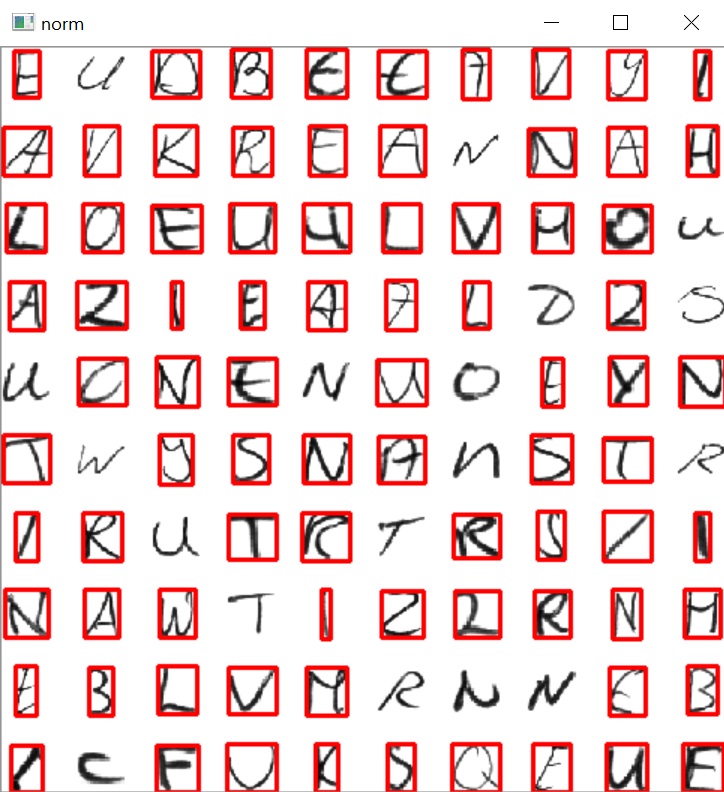 norm
E U D B E E 7 V Y I
A V K R E A N N A H
L O E U H L V M O U
A Z I E A 7 L D 2 S
U C N E N U O E Y N
T W Y S N A n S T R
I R U T R T R S / I
N A W T I Z 2 R N M
E B L V M R N N E B
I C F U K S Q E U E